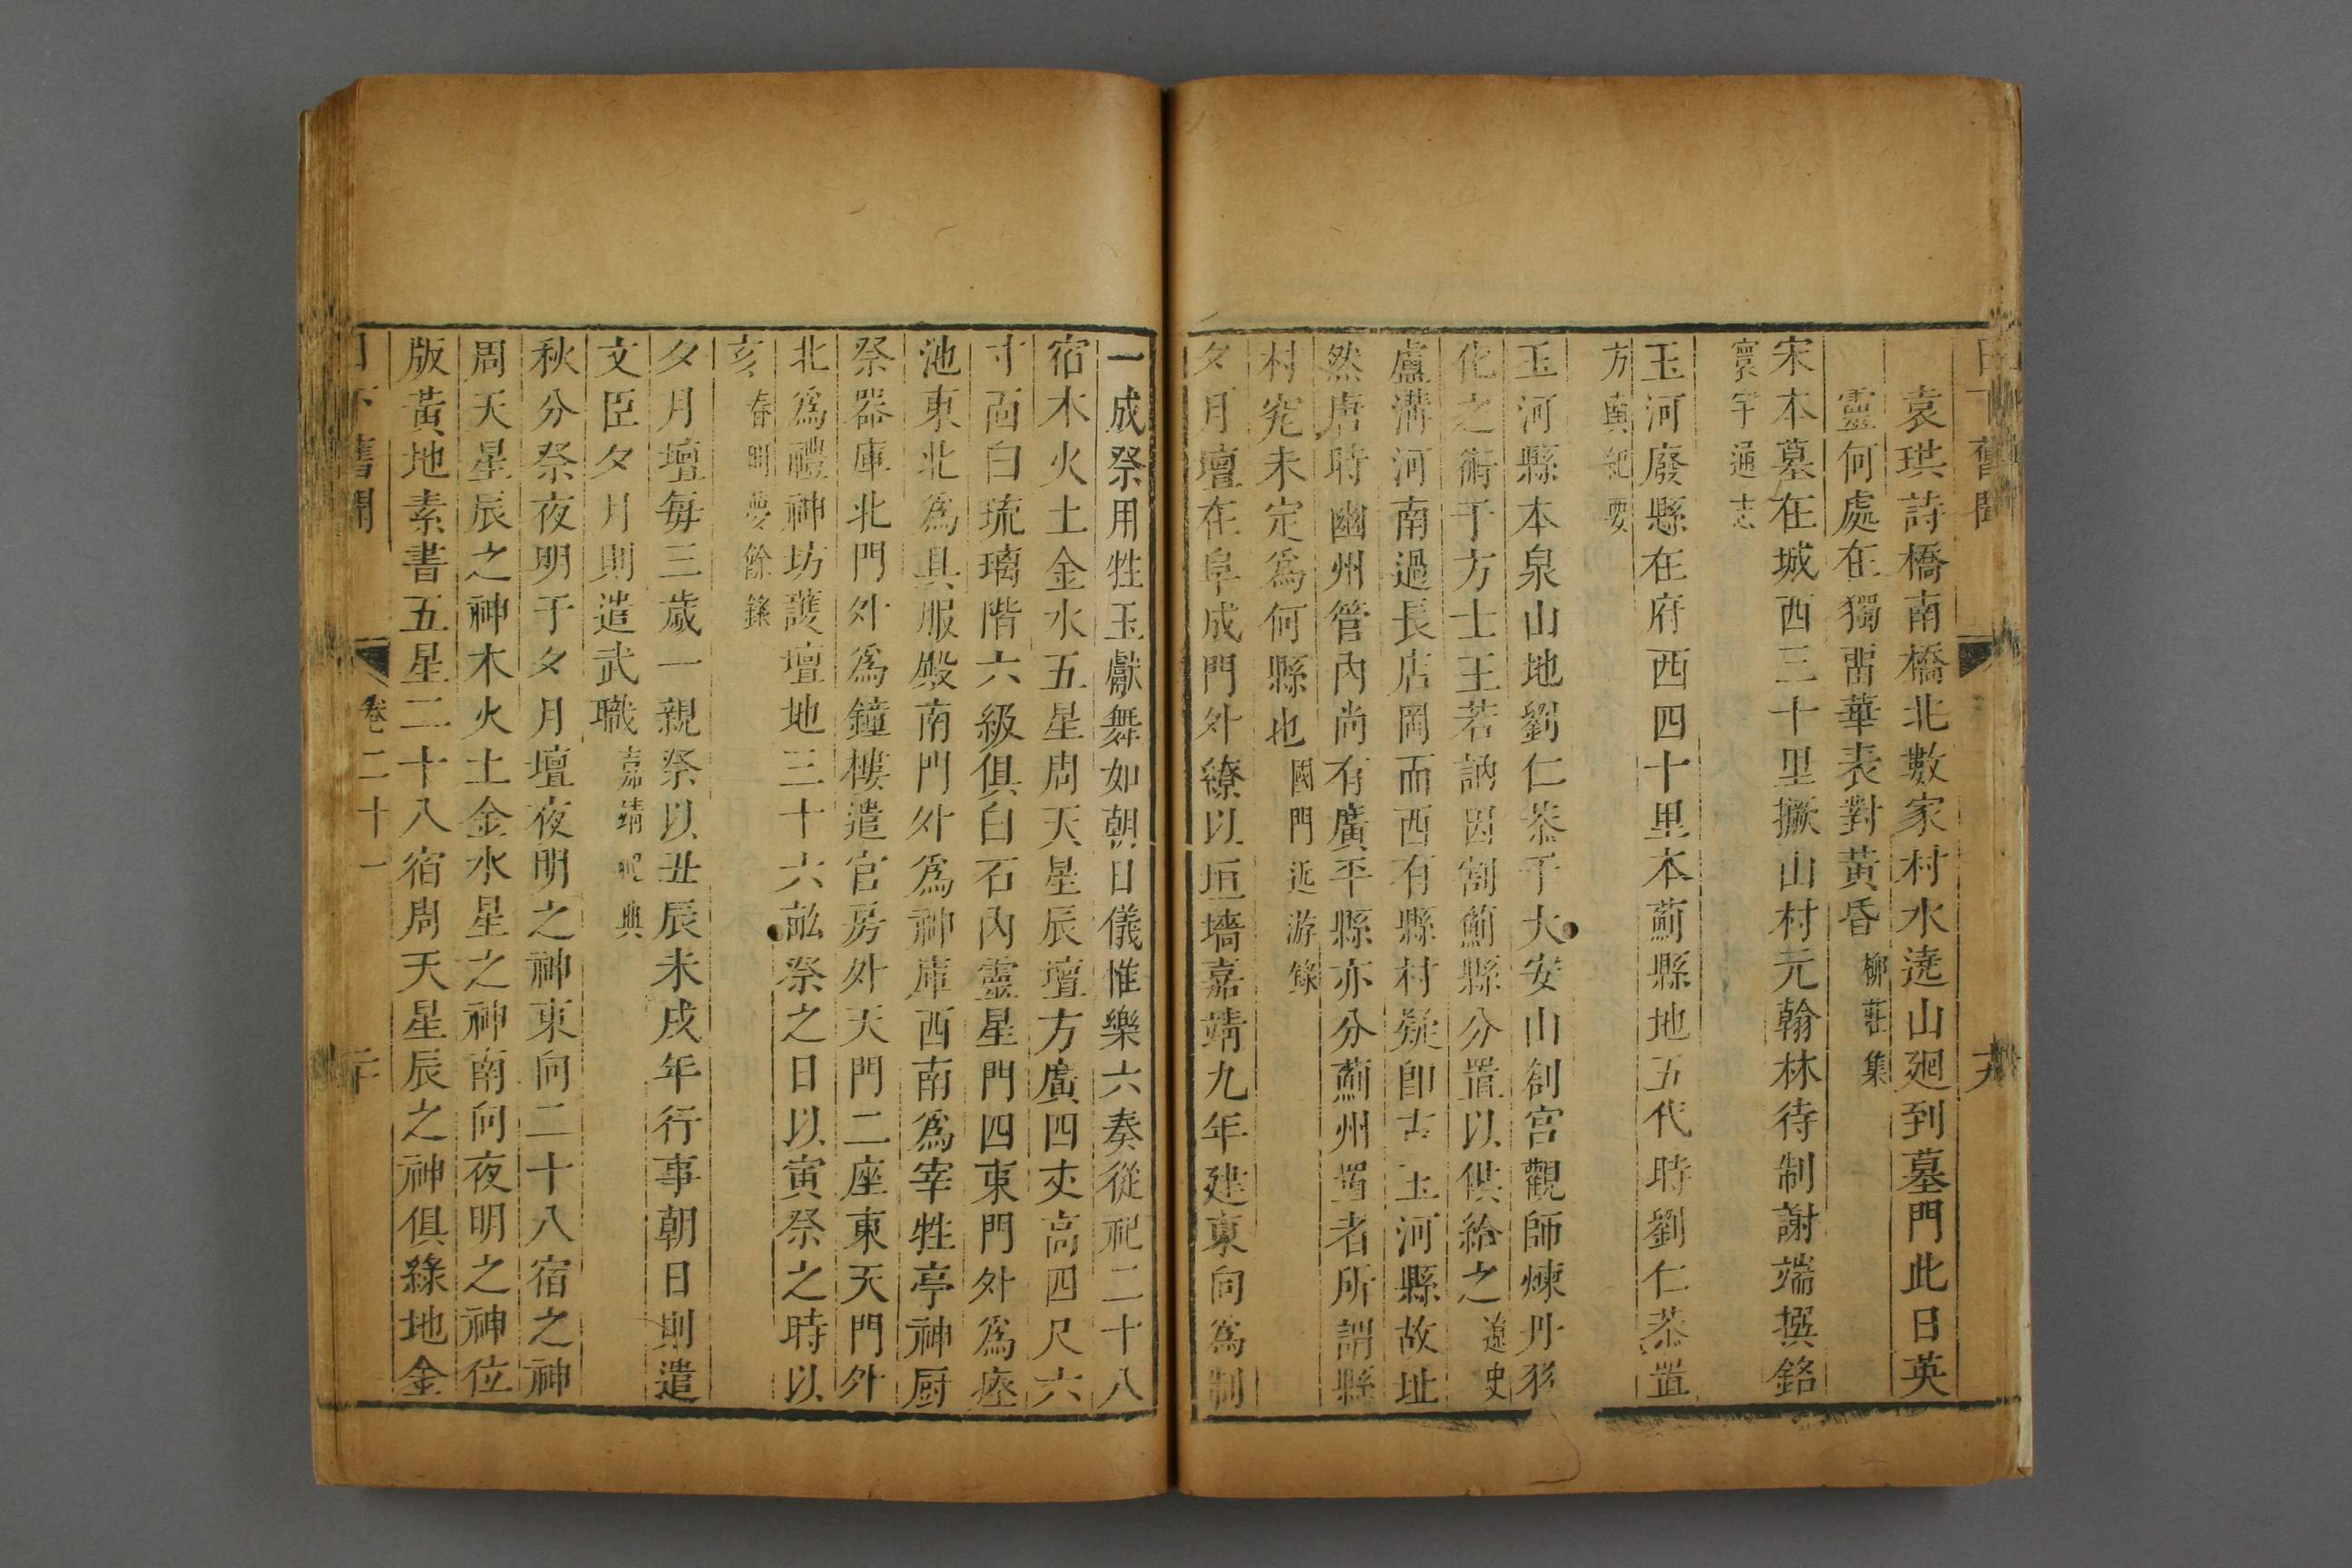 日下舊聞
十九
袁珙詩橋南橋北數家村水遶山廻到墓門此日英
靈何處在獨畱華表對黃昏柳莊集
宋本墓在城西三十里撅山村元翰林待制謝端撰銘
寰宇通志
玉河廢縣在府西四十里本薊縣地五代時劉仁恭置
方輿紀要
玉河縣本泉山地劉仁恭于大安山創宮觀師煉丹羽
化之術于方士王若訥因割薊縣分置以供給之遼史
盧溝河南過長店岡而西有縣村疑即古玉河縣故址
然唐時幽州管內尚有廣平縣亦分薊州置者所謂縣
村究未定爲何縣也國門近游錄
夕月壇在阜成門外繚以垣墻嘉靖九年建東向爲制
一成祭用牲玉獻舞如朝日儀惟樂六奏從祀二十八
宿木火土金水五星周天星辰壇方廣四丈高四尺六
寸面白琉璃階六級俱白石內靈星門四東門外爲瘞
池東北爲具服殿南門外爲神庫西南爲宰牲亭神厨
祭器庫北門外爲鐘樓遣官房外天門二座東天門外
北爲禮神坊護壇地三十六畝祭之日以寅祭之時以
亥春明夢餘錄
夕月壇每三歲一親祭以丑辰未戌年行事朝日則遣
文臣夕月則遣武職嘉靖祀典
秋分祭夜明于夕月壇夜明之神東向二十八宿之神
周天星辰之神木火土金水星之神南向夜明之神位
版黃地素書五星二十八宿周天星辰之神俱綠地金
日下舊聞
卷二十一
二十